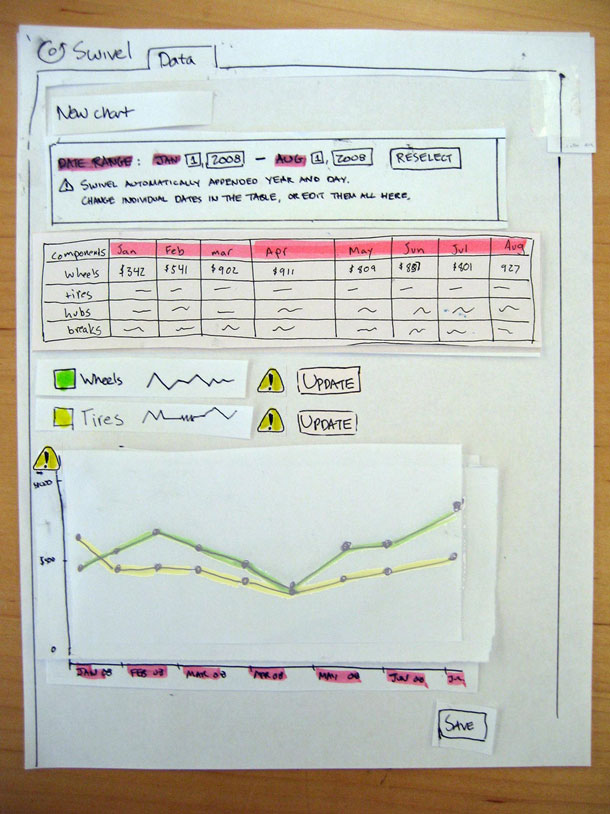 Swivel Data
New chart
DATE RANGE: JAN 1, 2008 – AUG 1, 2008 RESELECT
! SWIVEL AUTOMATICALLY APPENDED YEAR AND DAY.
CHANGE INDIVIDUAL DATES IN THE TABLE, OR EDIT THEM ALL HERE.
components Jan Feb mar Apr May Jun Jul Aug
wheels $342 $541 $902 $911 $809 $801 927
tires
hubs
breaks
Wheels ! UPDATE
Tires ! UPDATE
!
$500
0
JAN 08 FEB 08 MAR 08 APR 08 MAY 08 JUN 08
SAVE